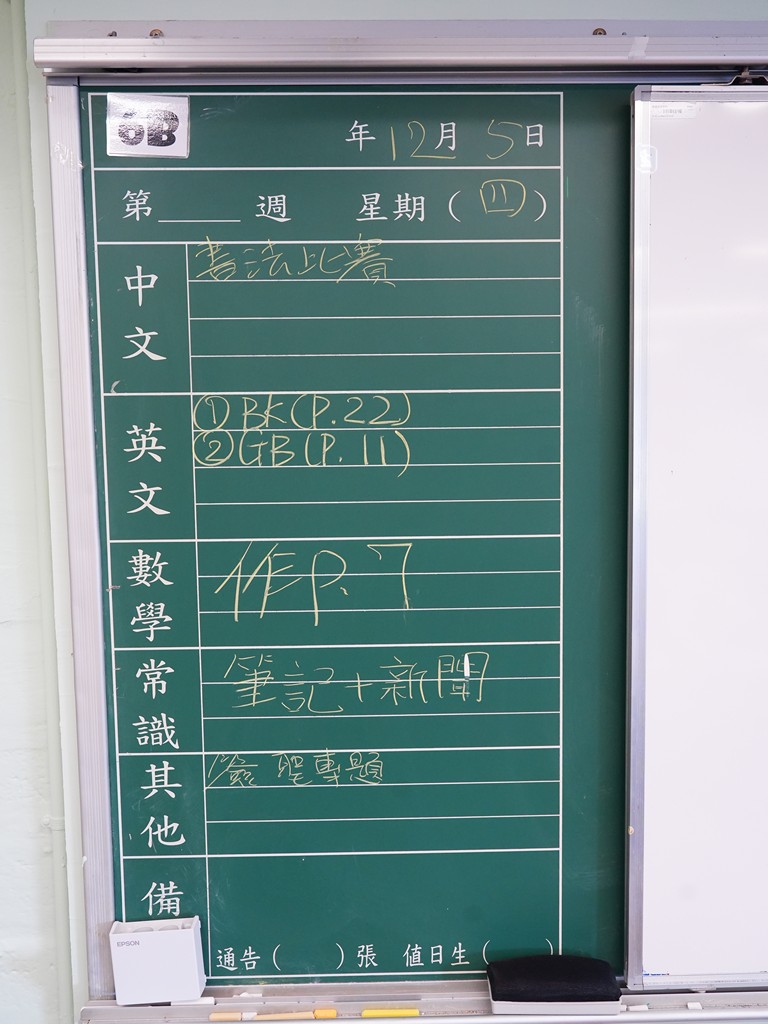 6B
年 12月 5日
第____週 星期(四)
中文
書法比賽
英文
① BK(P.22)
② GB(P.11)
數學
作P.7
常識
筆記+新聞
其他
聖專題
備
通告( )張 值日生( )
EPSON